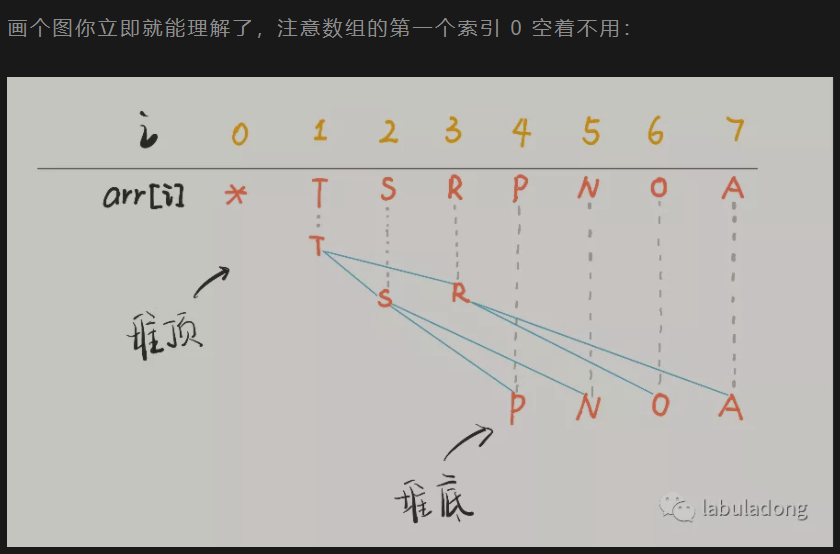 画个图你立即就能理解了，注意数组的第一个索引 0 空着不用：
i 0 1 2 3 4 5 6 7
arr[i] * T S R P N O A
T
S R
堆顶
P N O A
堆底
labuladong